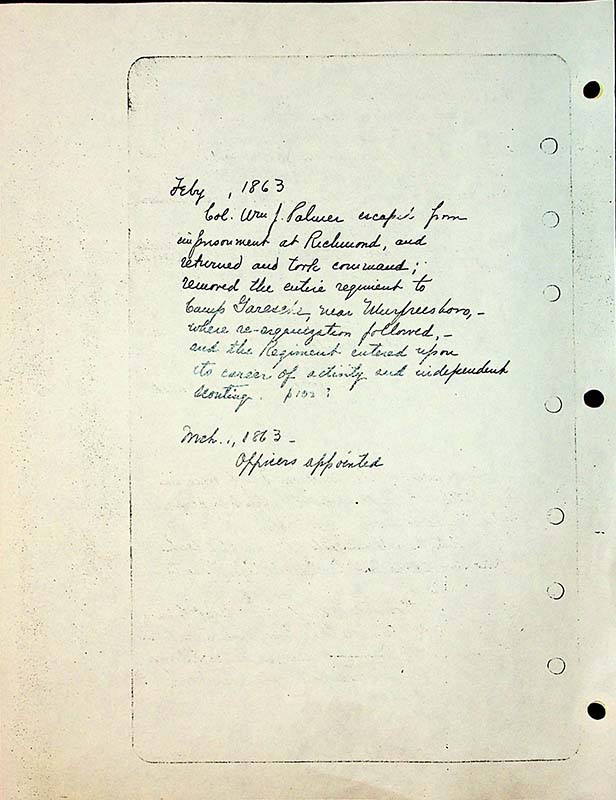 Feby , 1863
Col. Wm J. Palmer escapes from
imprisonment at Richmond, and
returned and took command;
removed the entire regiment to
Camp Garesche, near Murfreesboro, -
where re-organization followed, -
and the Regiment entered upon
its career of activity and independent
scouting.
Mch., 1863 -
Officers appointed